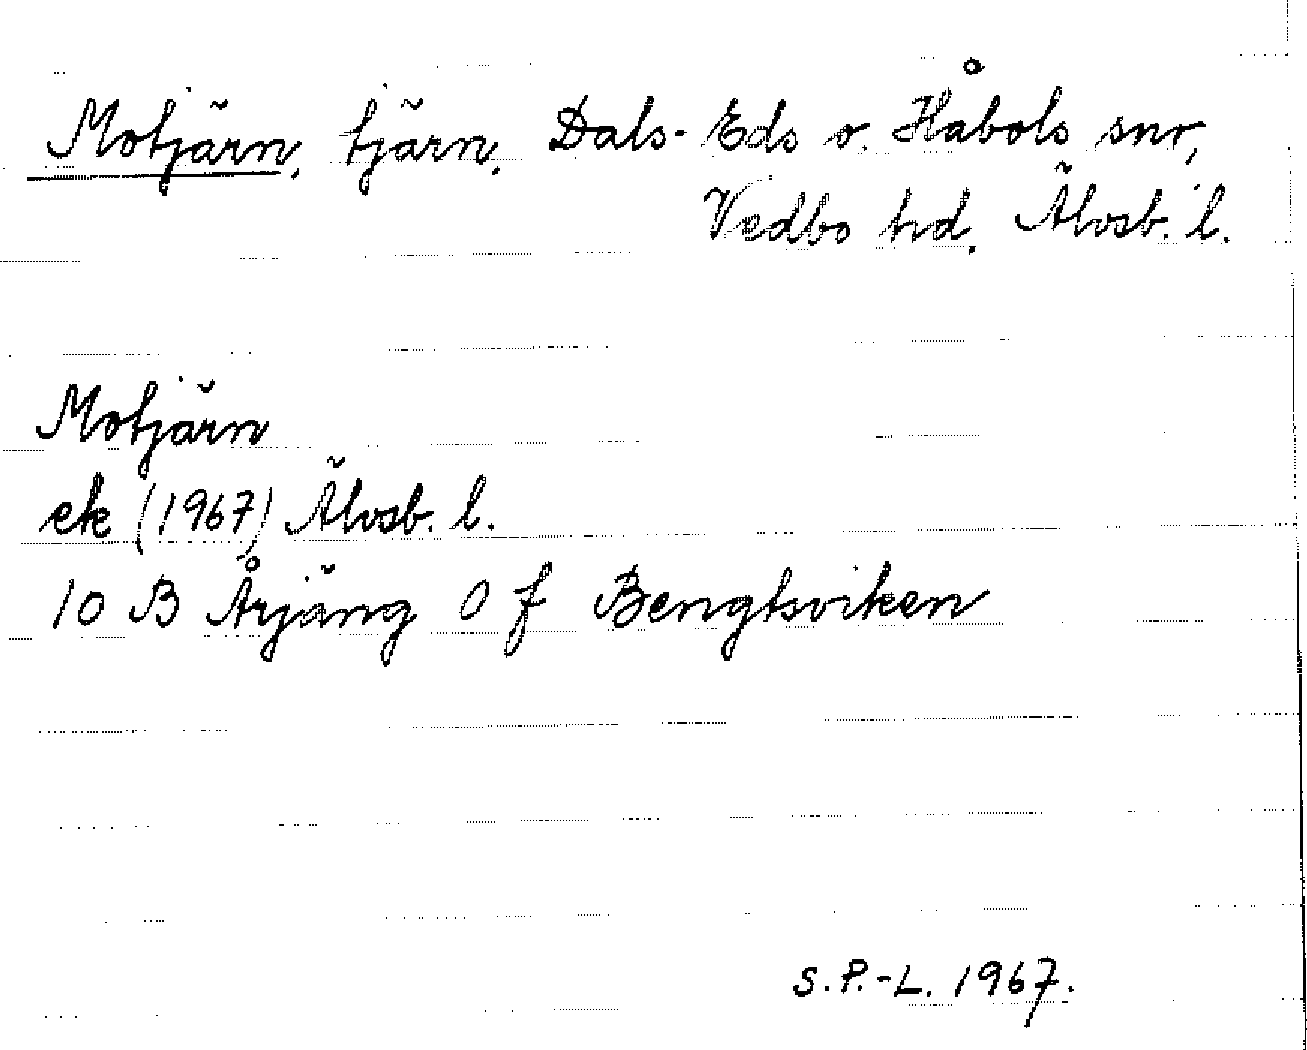 Motjärn, tjärn, Dals-Eds o. Håbols snr,
Vedbo hd, Älvsb. l.
Motjärn
ek (1967) Älvsb. l.
10 B Årjäng 0 f Bengtsviken
S.P.-L. 1967.